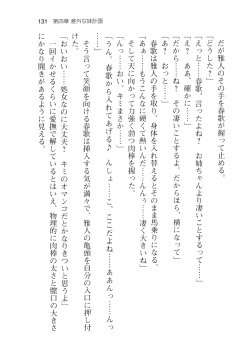 131　第四章 意外な妹計画
だが雅人のその手を春歌が握って止める。
「どうした？」
「ねえ、春歌、言ったよね？　お姉ちゃんより凄いことするって……」
「え？　ああ、確かに……」
「だから……ね？　凄いことするよ。だからほら、横になって」
「ん？　あ、ああ……」
春歌は雅人の手を取り、身体を入れ替えるとそのまま馬乗りになる。
「ああっ……もうこんなに硬くなって……凄く大きいね」
そして天に向かって力強く勃つ肉棒を握った。
「んっ……おい、キミまさか……」
「うん。春歌があげるからね♪　んしょ……こ、ここだよね……ああんっ……んっ」
そう言って笑顔を向ける春歌は挿入する気が満々で、雅人の亀頭を自分の入口に押し付けた。
「おいおい……処女なのに大丈夫？　キミのオマンコだとかなりきついと思うよ」
一回イカせるくらいに愛撫で解しているとはいえ、物理的に肉棒の太さと膣口の大きさにかなり開きがあるように見える。